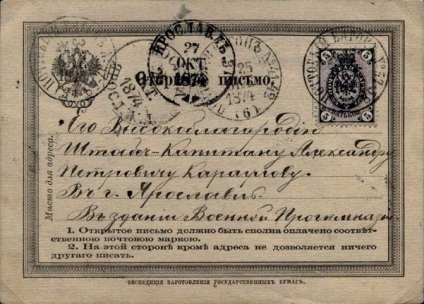 ЯРОСЛАВЛЬ
27
ОКТ.
1874
ОТКРЫТОЕ ПИСЬМО.
25
1874
(6)
5 5
5 5
Мѣсто для адреса.
Его Высокоблагородію
Штабсъ-Капитану Александру
Петровичу Караулову.
Въ г. Ярославль
Въ зданіи Военной Прогимназіи
1. Открытое письмо должно быть сполна оплачено соотвѣт-
ственною почтовою маркою.
2. На этой сторонѣ кромѣ адреса не дозволяется ничего
другаго писать.
ЭКСПЕДИЦІЯ ЗАГОТОВЛЕНІЯ ГОСУДАРСТВЕННЫХЪ БУМАГЪ.